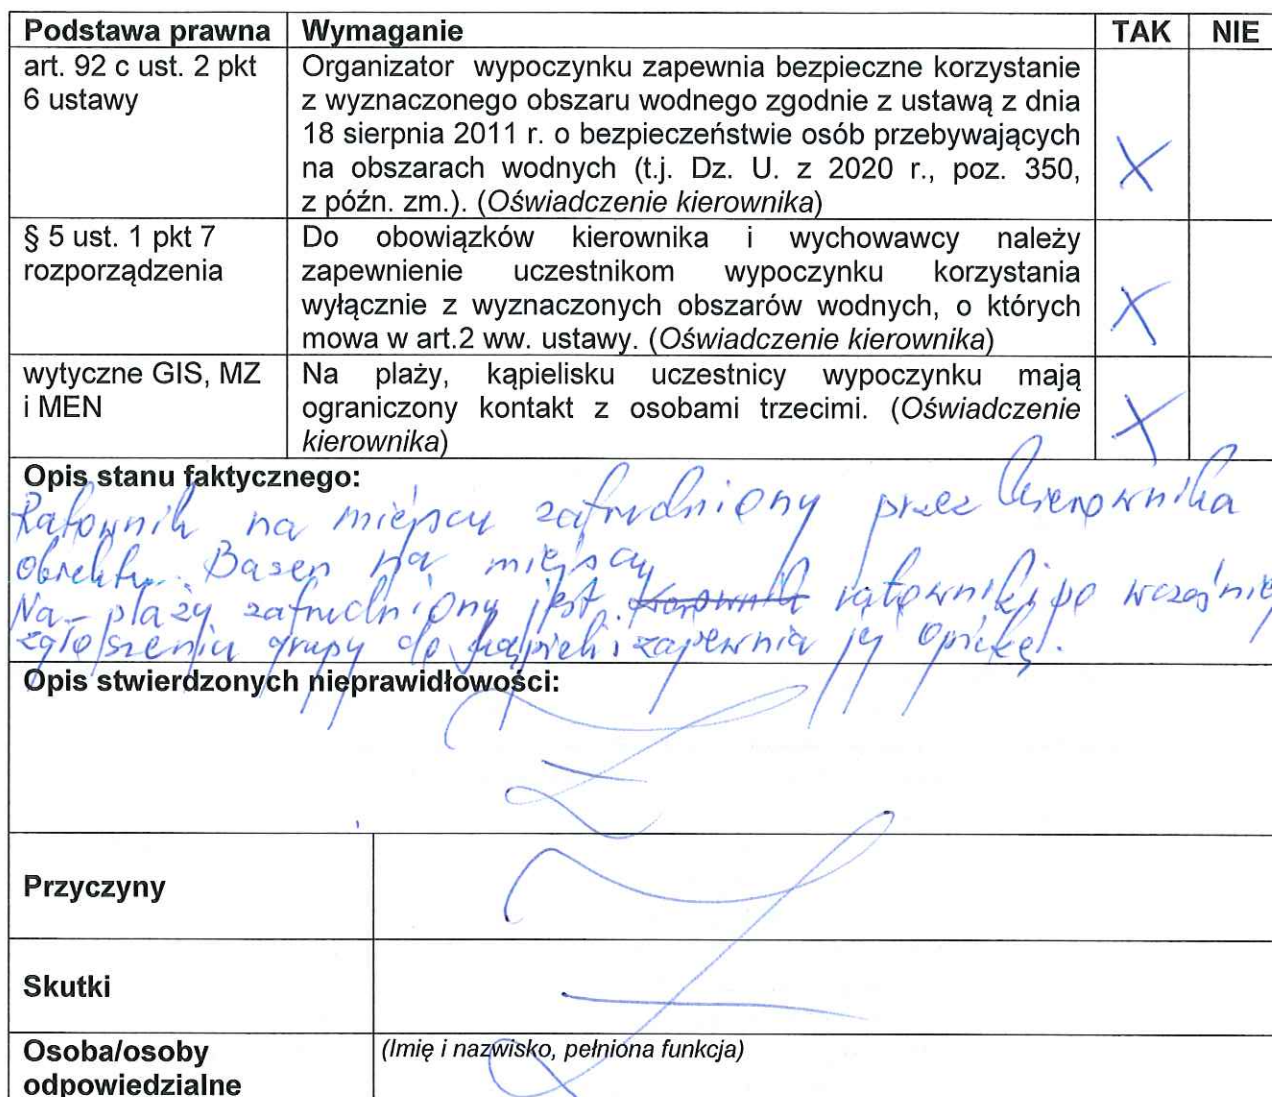 Podstawa prawna Wymaganie TAK NIE
art. 92 c ust. 2 pkt
6 ustawy
Organizator wypoczynku zapewnia bezpieczne korzystanie
z wyznaczonego obszaru wodnego zgodnie z ustawą z dnia
18 sierpnia 2011 r. o bezpieczeństwie osób przebywających
na obszarach wodnych (t.j. Dz. U. z 2020 r., poz. 350,
z późn. zm.). (Oświadczenie kierownika)
X
§ 5 ust. 1 pkt 7
rozporządzenia
Do obowiązków kierownika i wychowawcy należy
zapewnienie uczestnikom wypoczynku korzystania
wyłącznie z wyznaczonych obszarów wodnych, o których
mowa w art.2 ww. ustawy. (Oświadczenie kierownika)
X
wytyczne GIS, MZ
i MEN
Na plaży, kąpielisku uczestnicy wypoczynku mają
ograniczony kontakt z osobami trzecimi. (Oświadczenie
kierownika)
X
Opis stanu faktycznego:
Ratownik na miejscu zatrudniony przez kierownika
obiektu. Basen na miejscu
Na plaży zatrudniony jest ratownik i po wcześniej
zgłoszeniu grupy do kąpieli zapewnia jej opiekę.
Opis stwierdzonych nieprawidłowości:
Przyczyny
Skutki
Osoba/osoby
odpowiedzialne
(Imię i nazwisko, pełniona funkcja)